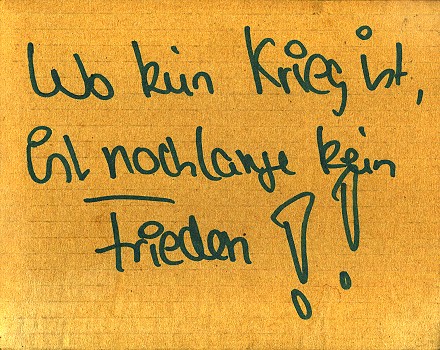 Wo kein Krieg ist,
ist noch lange kein
Frieden!!